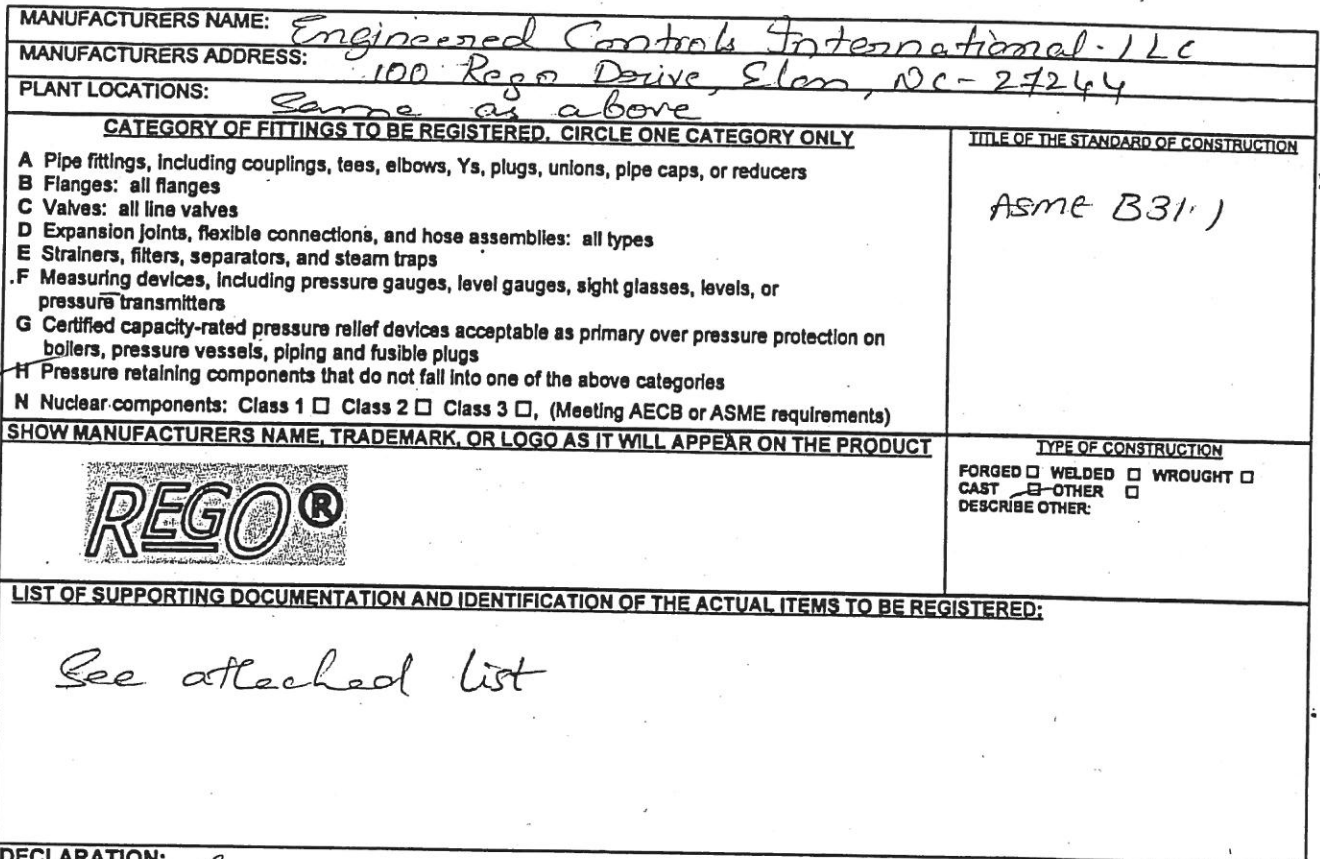 MANUFACTURERS NAME: Engineered Controls International. LLC
MANUFACTURERS ADDRESS: 100 Rego Derive, Elon, NC - 27244
PLANT LOCATIONS: Same as above
CATEGORY OF FITTINGS TO BE REGISTERED. CIRCLE ONE CATEGORY ONLY
A Pipe fittings, including couplings, tees, elbows, Ys, plugs, unions, pipe caps, or reducers
B Flanges: all flanges
C Valves: all line valves
D Expansion joints, flexible connections, and hose assemblies: all types
E Strainers, filters, separators, and steam traps
F Measuring devices, including pressure gauges, level gauges, sight glasses, levels, or
pressure transmitters
G Certified capacity-rated pressure relief devices acceptable as primary over pressure protection on
boilers, pressure vessels, piping and fusible plugs
H Pressure retaining components that do not fall into one of the above categories
N Nuclear components: Class 1 □ Class 2 □ Class 3 □, (Meeting AECB or ASME requirements)
TITLE OF THE STANDARD OF CONSTRUCTION
ASME B31.1
SHOW MANUFACTURERS NAME, TRADEMARK, OR LOGO AS IT WILL APPEAR ON THE PRODUCT
REGO®
TYPE OF CONSTRUCTION
FORGED □ WELDED □ WROUGHT □
CAST □ OTHER □
DESCRIBE OTHER:
LIST OF SUPPORTING DOCUMENTATION AND IDENTIFICATION OF THE ACTUAL ITEMS TO BE REGISTERED:
See attached list
DECLARATION: